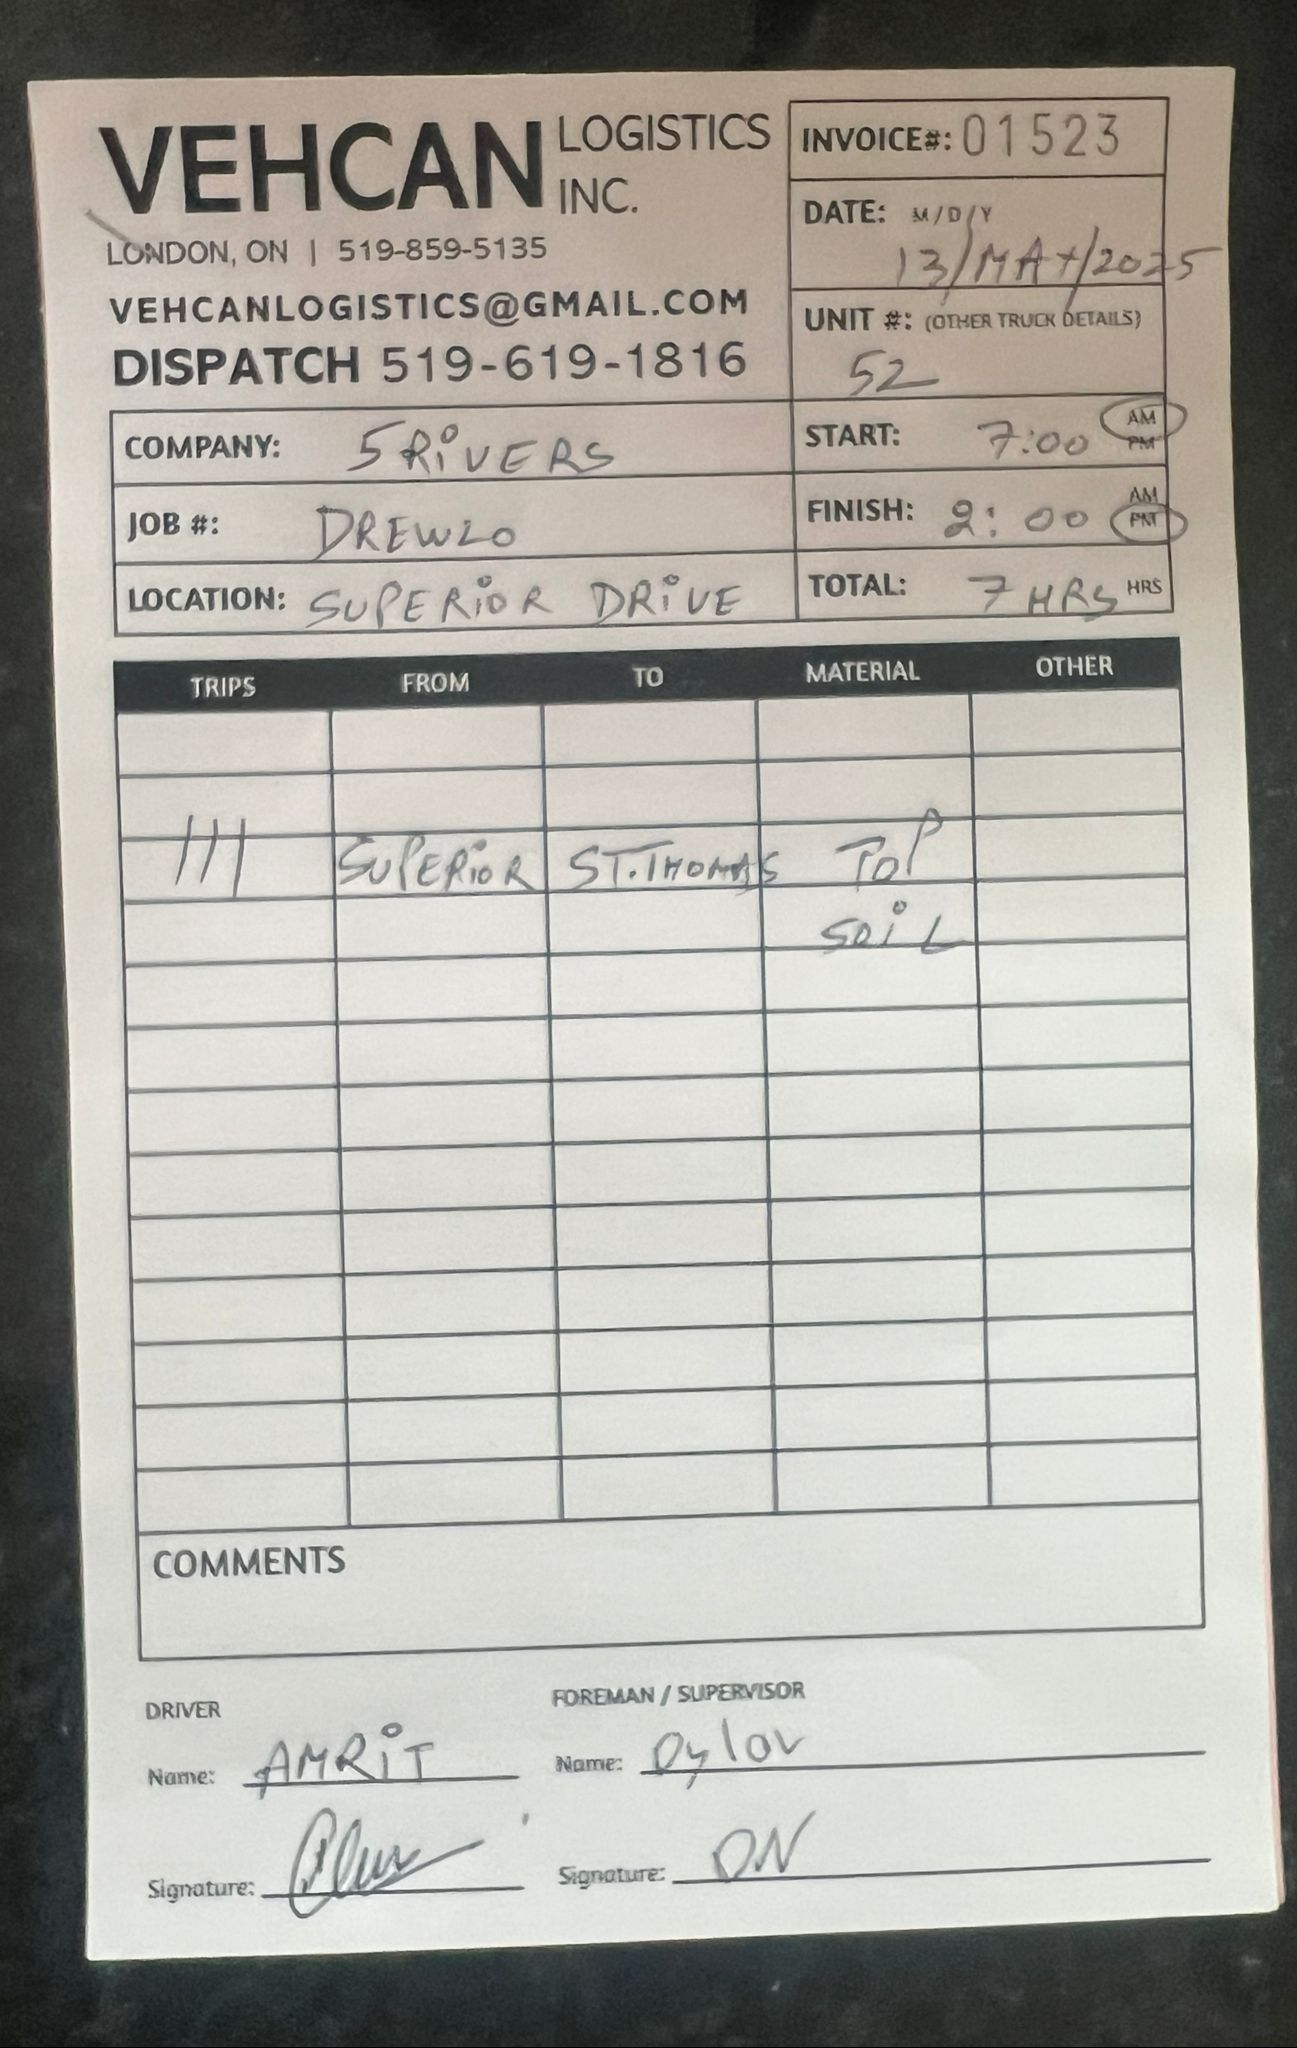 VEHCAN LOGISTICS INC.
LONDON, ON | 519-859-5135
VEHCANLOGISTICS@GMAIL.COM
DISPATCH 519-619-1816
INVOICE#: 01523
DATE: M/D/Y
13/MAY/2025
UNIT #: (OTHER TRUCK DETAILS)
52
COMPANY: 5 RiVERS
START: 7:00 AM PM
JOB #: DREWLO
FINISH: 2:00 AM PM
LOCATION: SUPERiOR DRiVE
TOTAL: 7 HRS HRS
TRIPS FROM TO MATERIAL OTHER
III SUPERiOR ST.THOMAS TOP
SOiL
COMMENTS
DRIVER
Name: AMRiT
Signature:
FOREMAN / SUPERVISOR
Name: Dylan
Signature: DN